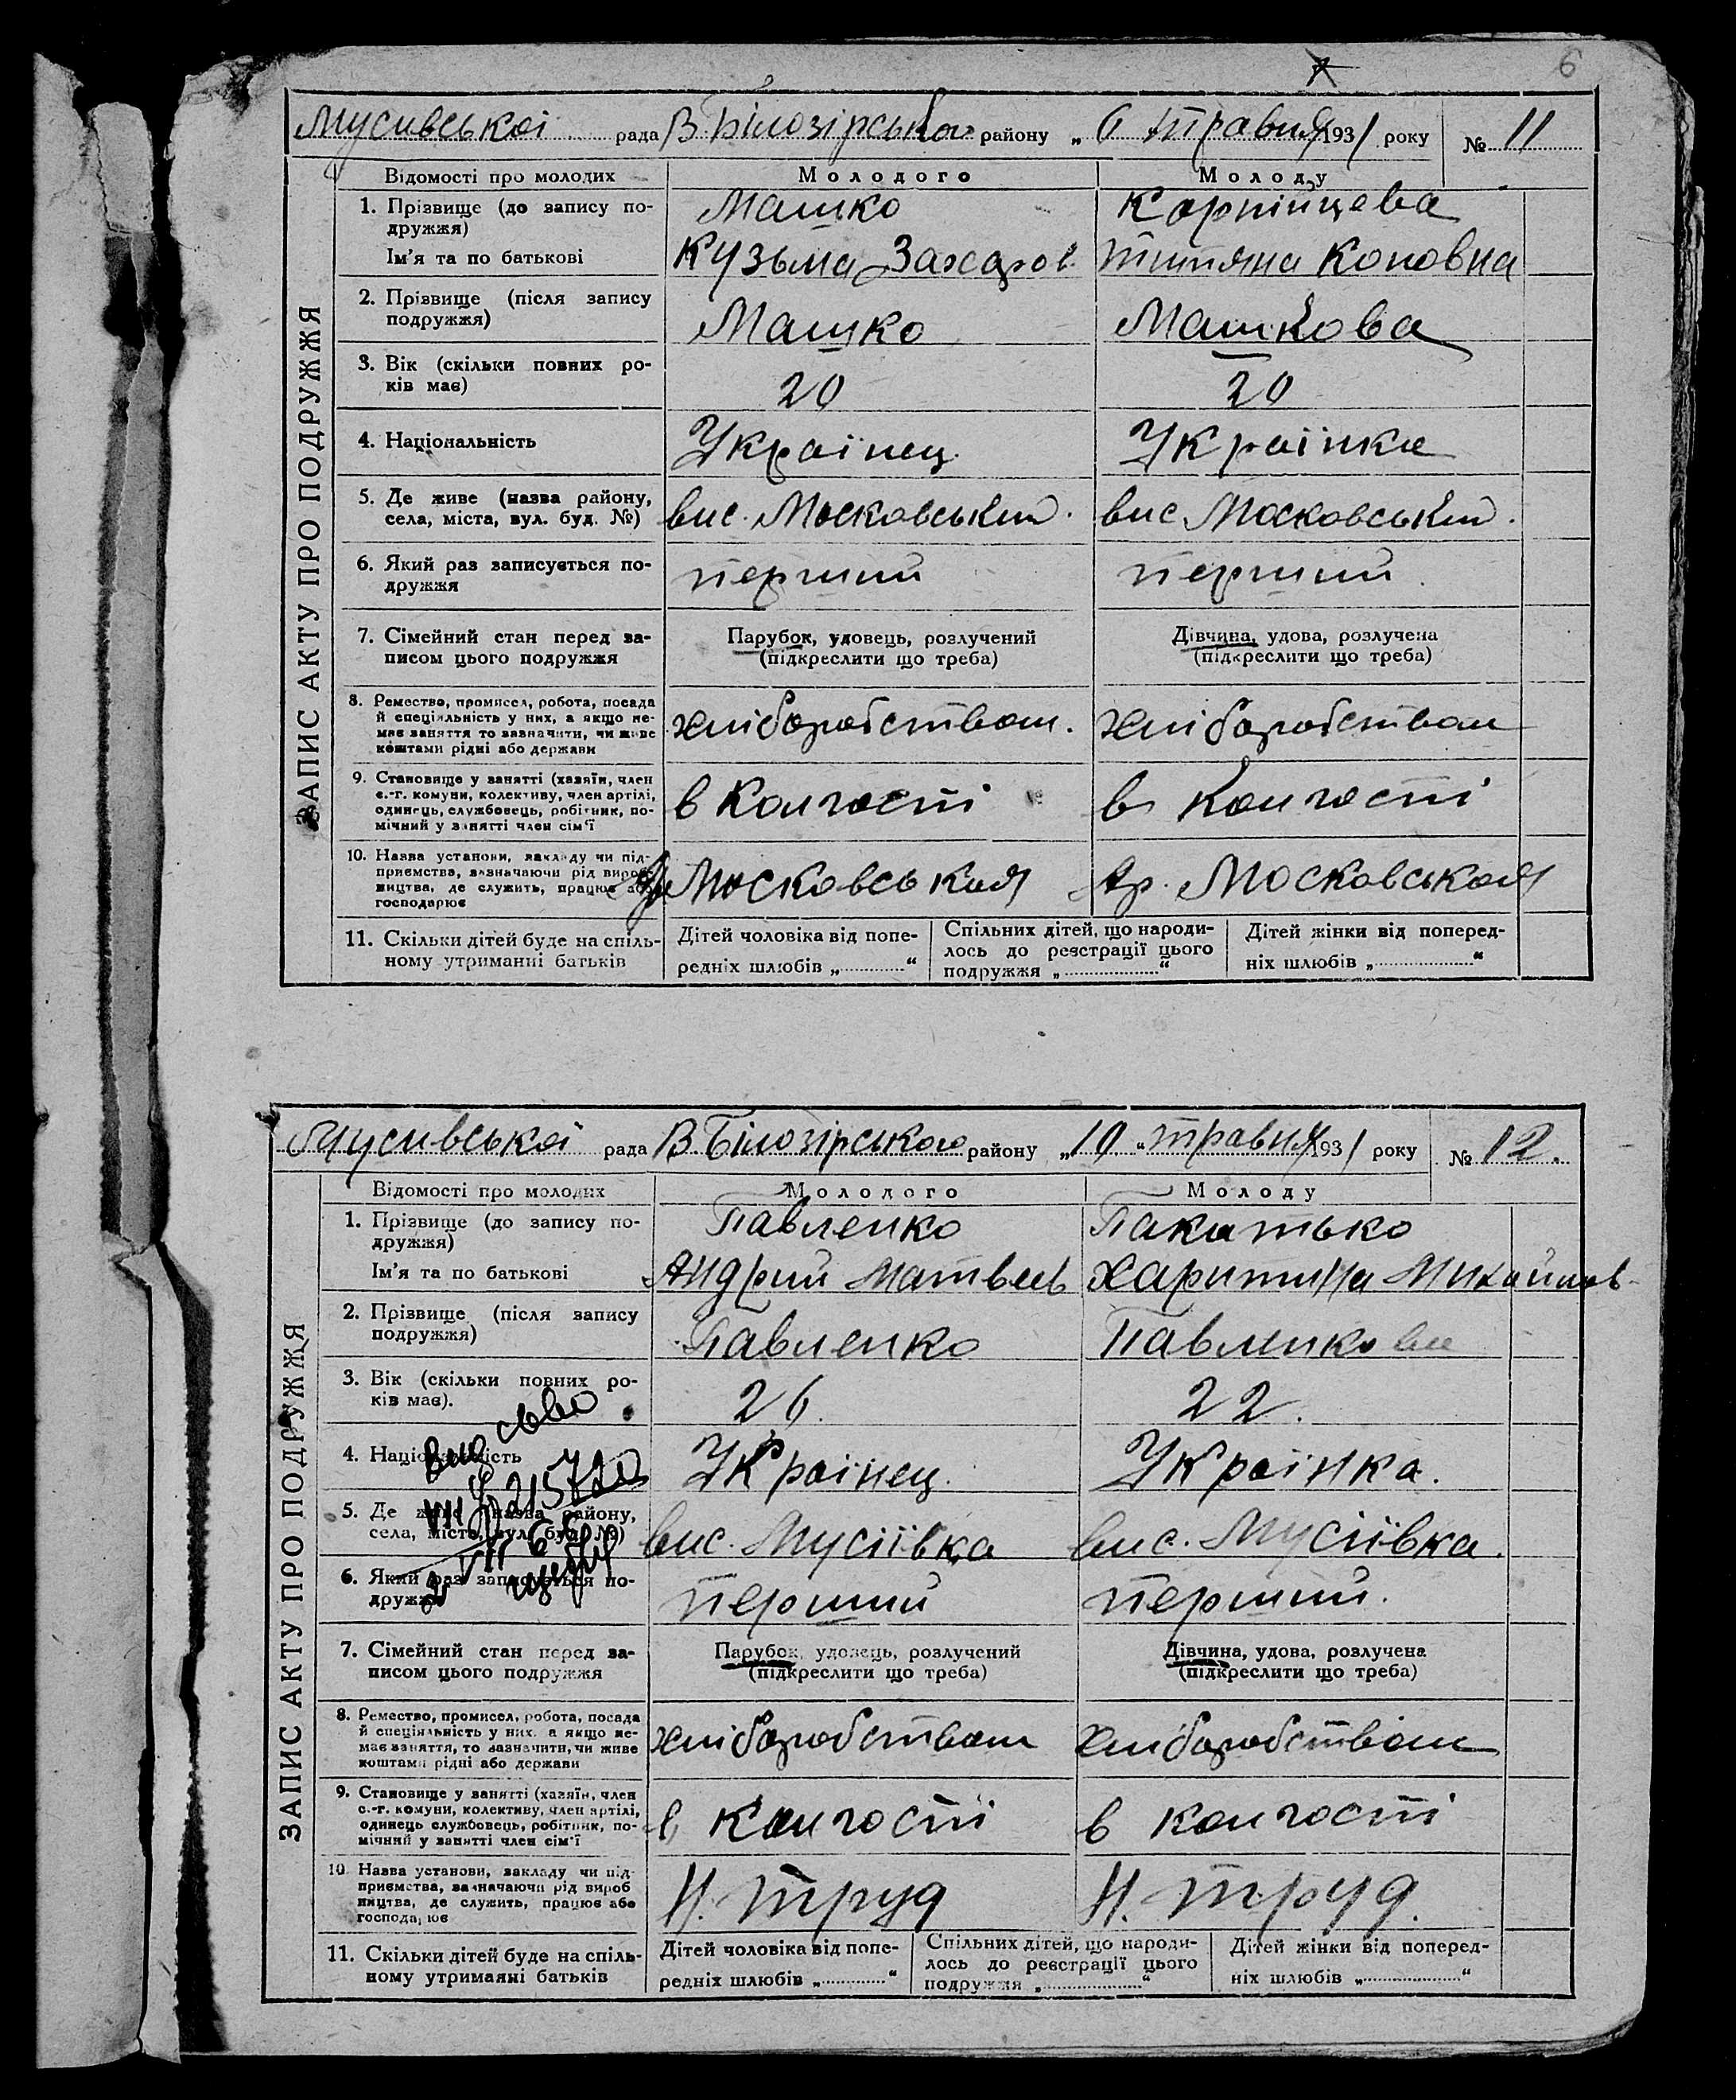 6
Мусивської рада В. Білозірського району „ 6 травня 1931 року № 11
ЗАПИС АКТУ ПРО ПОДРУЖЖЯ
Відомості про молодих Молодого Молоду
1. Прізвище (до запису по- Машко Корпінцева
дружжя)
Ім'я та по батькові Кузьма Захаров. Титяна Коновна
2. Прізвище (після запису
подружжя) Машко Машкова
3. Вік (скільки повних ро-
ків має) 20 20
4. Національність Українец Українка
5. Де живе (назва району,
села, міста, вул. буд. №) вис. Московський. вис Московський.
6. Який раз записується по- перший перший
дружжя
7. Сімейний стан перед за- Парубок, удовець, розлучений Дівчина, удова, розлучена
писом цього подружжя (підкреслити що треба) (підкреслити що треба)
8. Ремество, промисел, робота, посада
й спеціяльність у них, а якщо не- хліборобством. хліборобством
має заняття то зазначити, чи живе
коштами рідні або держави
9. Становище у занятті (хазяїн, член
с.-г. комуни, колективу, член артілі, в колгості в колгості
одинець, службовець, робітник, по-
мічний у занятті член сім'ї
10. Назва установи, закладу чи під-
приємства, зазначаючи рід вироб-
ництва, де служить, працює або Московська Ар. Московська
господарює
11. Скільки дітей буде на спіль- Дітей чоловіка від попе- Спільних дітей, що народи- Дітей жінки від поперед-
ному утриманні батьків редніх шлюбів „ “ лось до реєстрації цього ніх шлюбів „ “
подружжя „ “
Мусивської рада В. Білозірського району „10 „ травня 1931 року № 12.
ЗАПИС АКТУ ПРО ПОДРУЖЖЯ
Відомості про молодих Молодого Молоду
1. Прізвище (до запису по- Павленко Пакатько
дружжя)
Ім'я та по батькові Андрий Матвеев Харитина Михайлов
2. Прізвище (після запису
подружжя) Павленко Павленкова
3. Вік (скільки повних ро-
ків має). 26. 22.
4. Національність Українец. Українка.
5. Де живе (назва району,
села, міста, вул. буд. №) вис. Мусіївка вис. Мусіївка.
6. Який раз записується по- перший перший.
дружжя
7. Сімейний стан перед за- Парубок, удовець, розлучений Дівчина, удова, розлучена
писом цього подружжя (підкреслити що треба) (підкреслити що треба)
8. Ремество, промисел, робота, посада
й спеціяльність у них, а якщо не- хліборобством хліборобством
має заняття, то зазначити, чи живе
коштами рідні або держави
9. Становище у занятті (хазяїн, член
с.-г. комуни, колективу, член артілі, в колгості в колгості
одинець службовець, робітник, по-
мічний у занятті член сім'ї
10. Назва установи, закладу чи під-
приємства, зазначаючи рід вироб
ництва, де служить, працює або Н. труд Н. труд.
господарює
11. Скільки дітей буде на спіль- Дітей чоловіка від попе- Спільних дітей, що народи- Дітей жінки від поперед-
ному утриманні батьків редніх шлюбів „ “ лось до реєстрації цього ніх шлюбів „ “
подружжя „ “